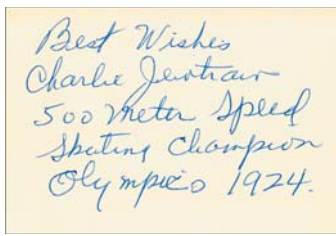 Best Wishes
Charlie Jewtraw
500 Meter Speed
Skating Champion
Olympics 1924.